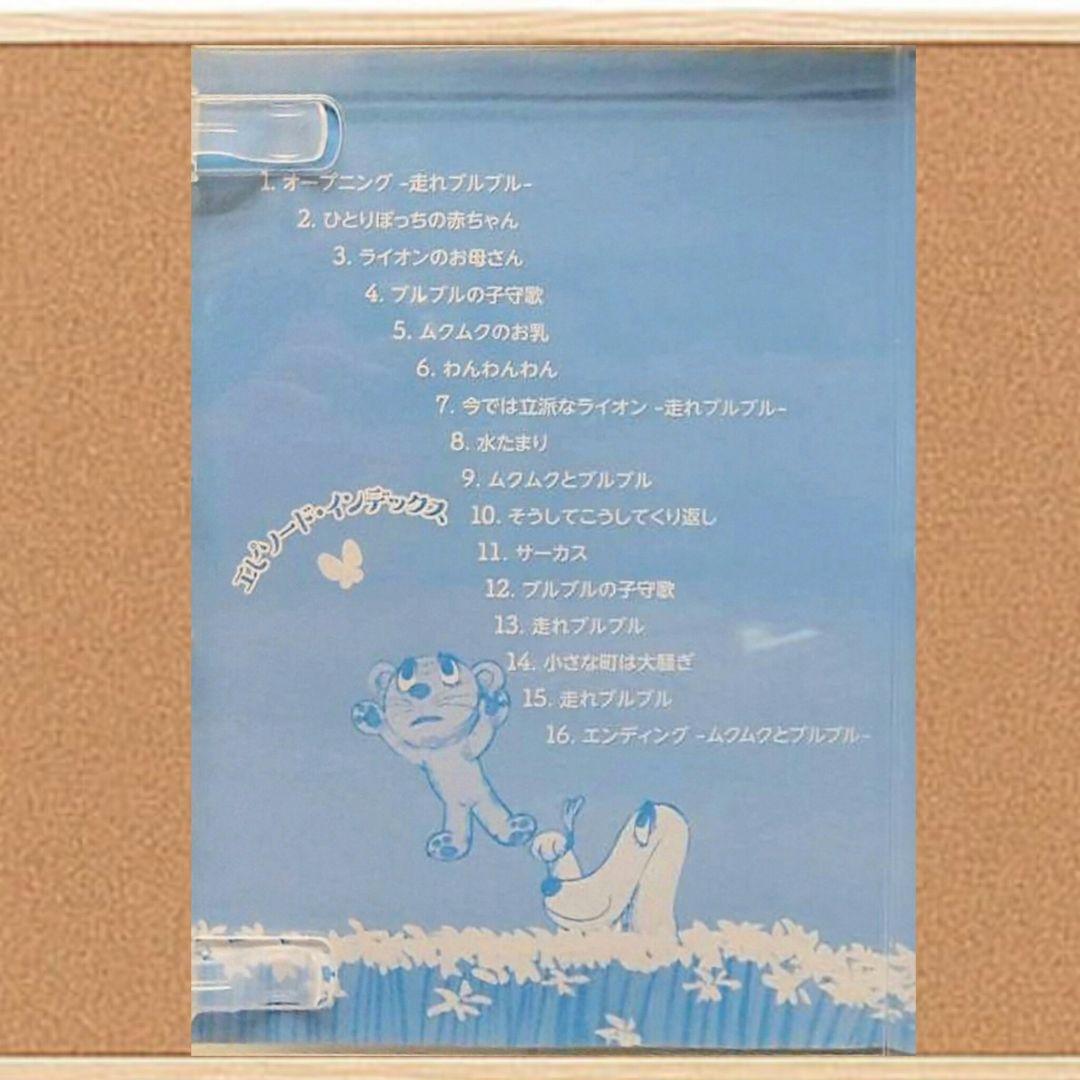 1. オープニング -走れブルブル-
2. ひとりぼっちの赤ちゃん
3. ライオンのお母さん
4. ブルブルの子守歌
5. ムクムクのお乳
6. わんわんわん
7. 今では立派なライオン -走れブルブル-
8. 水たまり
9. ムクムクとブルブル
10. そうしてこうしてくり返し
11. サーカス
12. ブルブルの子守歌
13. 走れブルブル
14. 小さな町は大騒ぎ
15. 走れブルブル
16. エンディング -ムクムクとブルブル-
エピソード・インデックス